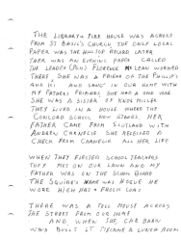 THE LIBRARY + FIRE HOUSE WAS ACROSS
FROM ST BASIL'S CHURCH. THE DAILY LOCAL
PAPER WAS THE HILLTOP RECORD LATER
THERE WAS AN EVENING PAPER CALLED
THE LEADER (AUNT) FLORENCE McLEAN WORKED
THERE. SHE WAS A FRIEND OF THE PHILLIPS
AND SANG IN OUR HOME WITH
MY FATHERS FRIENDS. SHE HAD A SON
SHE WAS A SISTER OF
THEY LIVED IN A HOUSE WHERE THE
CONCORD SCHOOL NOW STANDS. HER
FATHER CAME FROM SCOTLAND WITH
ANDREW CARNEGIE SHE RECEIVED A
CHECK FROM CARNEGIE ALL HER LIFE
WHEN THEY SCHOOL TEACHERS
THEY MET ON OUR LAWN AND MY
FATHER WAS ON THE SCHOOL BOARD
THE SQUIRE'S NAME WAS HE
WORE HIGH HAT + FROCK COAT
THERE WAS A TOLL HOUSE ACROSS
THE STREET FROM OUR HOME
AND WHEN THE CAR BARN
WAS BUILT IT BECAME A LUNCH ROOM